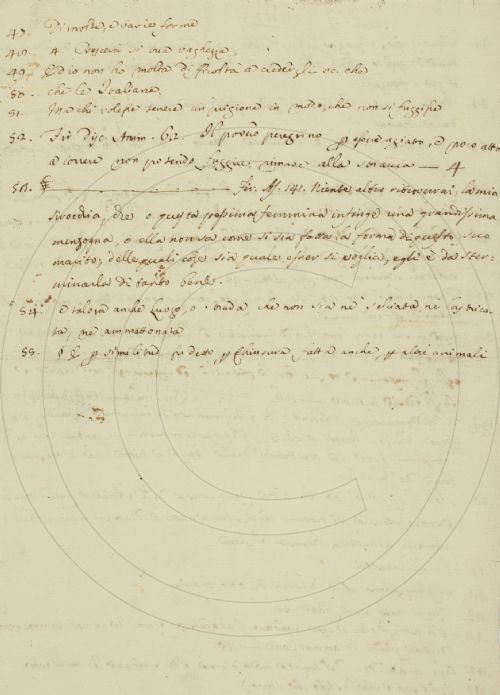 47. Di molte, e varie forme
48. 4. Crescerà si sua vaghezza,
49. Ed io non ho molta difficoltà a crederli ec. che
50. che le Italiane.
51. Ma chi volesse tenere un prigione in modo, che non si fuggisse
52. Fir. disc. Anim. 62. Il povero peregrino p esser agiato, e poco atto
a correre non potendo fuggir, rimase alla stiaccia — 4
Fir. As. 141. Niente altro ricercerai, la mia
sirocchia, che o questa pessima femmina infinge una grandissima
menzogna, o ella non sa come si sia fatta la forma di questo suo
marito; delle quali cose sia quale esser si voglia, egli è da ster-
minarla di tanto bene.
54. e talora anche Luogo, o strada che non sia nè selciata nè lastrica-
ta, nè ammattonata
55. § E p similitud. fu detto p fatta anche p altri animali